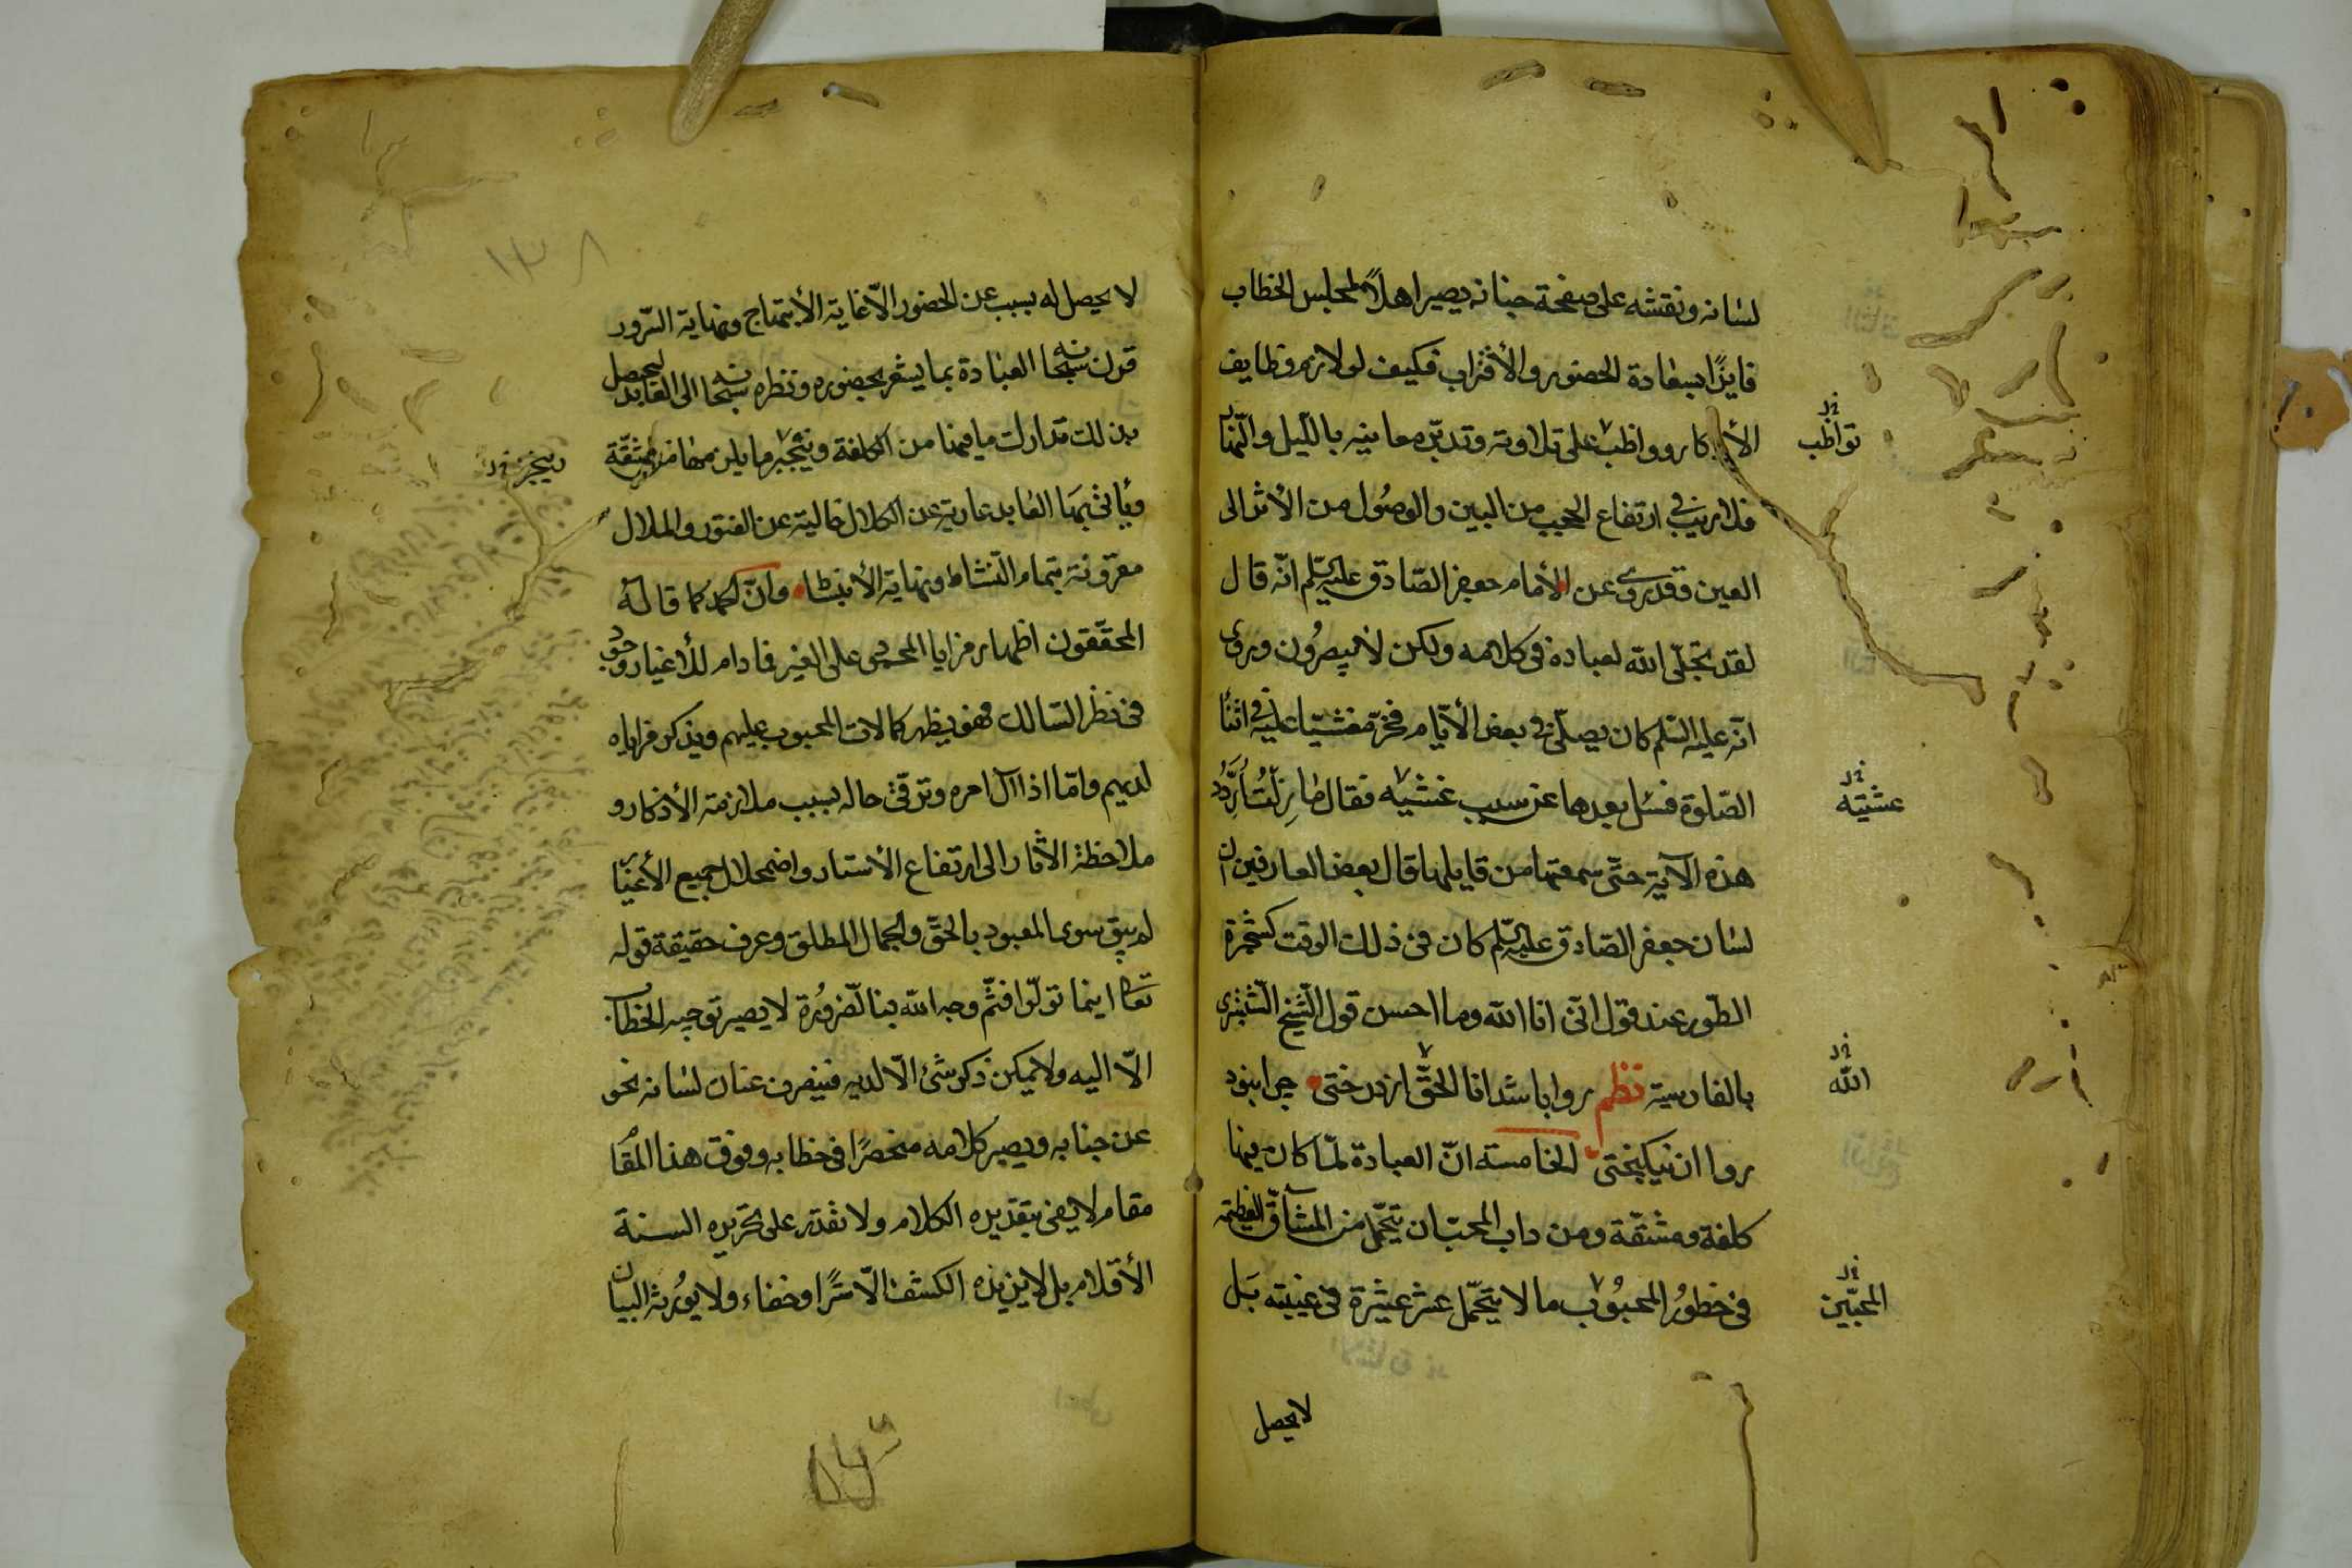 لسانه ونقشه على صفحة جنانه يصير اهلاً لمجلس الخطاب
فايزًا بسعادة الحضور والأقتراب فكيف لو لازم وظايف
الأذكار وواظب على تلاوته وتدبّر معانيه بالليل والنّهار
فلا ريب في ارتفاع الحجب من البين والوصُول من الأثر الى
العين فقد روى عن الأمام جعفر الصّادق عليه السّلم انّه قال
لقد تجلّى الله لعباده فى كلامه ولكن لا يبصرُون وروى
انّه عليه السّلم كان يصلّى فى بعض الأيّام فخرّ مغشيّا عليه فى اثناء
الصّلوة فسئل بعدها عن سبب غشيه فقال ما زلتُ اُردّد
هذه الآية حتّى سمعتها من قايلها قال بعض العارفين ان
لسان جعفر الصّادق عليه السّلم كان فى ذلك الوقت كشجرة
الطّور عند قول انّى انا الله وما احسن قول الشّيخ الشّبسترى
بالفارسية نظم روا باشد انا الحقّ از درختى چرا نبود
روا از نيكبختى الخامسة انّ العبادة لمّا كان فيها
كلفة ومشقّة ومن داب المحبّ ان يتحمّل من المشاقّ العظيمة
فى حضورُ المحبُوب ما لا يتحمّل عشر عشيرة فى غيبته بَل
تواظب
غشيته
الله
المحبّين
لا يحصل
١٣٨
لا يحصل له بسبب عزّ الحضور الاّ غاية الأبتهاج ونهاية السّرور
قرن سبحانه العبادة بما يشعر بحضوره ونظره سبحانه الى العابد ليحصل
بذلك تدارك ما فيها من الكلفة وينجبر ما يلزمها من المشقّة
ويأتى بها العابد عارية عن الكلال خالية عن الفتور والملال
مقرونة بتمام النّشاط ونهاية الأنبساط وانّ الحمد كما قاله
المحقّقون اظهار مزايا المحمود على الغير فما دام للأغيار وجود
فى نظر السّالك فهو يظهر كمالات المحبوب عليهم ويذكر مزاياه
لديهم وامّا اذا آل امره وترقّى حاله بسبب ملازمة الأذكار و
ملاحظة الآثار الى ارتفاع الأستار واضمحلال جميع الأغيار
لم يبق سوى المعبود بالحقّ والجمال المطلق وعرف حقيقة قوله
تعالى اينما تولّوا فثّم وجه الله فبالضّرورُة لا يصير توجيه الخطاب
الاّ اليه ولا يمكن ذكر شئ الاّ لديه فينصرف عنان لسانه نحو
عن جنابه ويصير كلامه منحصرًا فى خطابه وفوق هذا المقام
مقام لا يفى بتقديره الكلام ولا تقدر على تحريره السنة
الأقلام بل لا يزيده الكشف الاّ سترًا وخفاء ولا يورُثه البيان
ينجبر